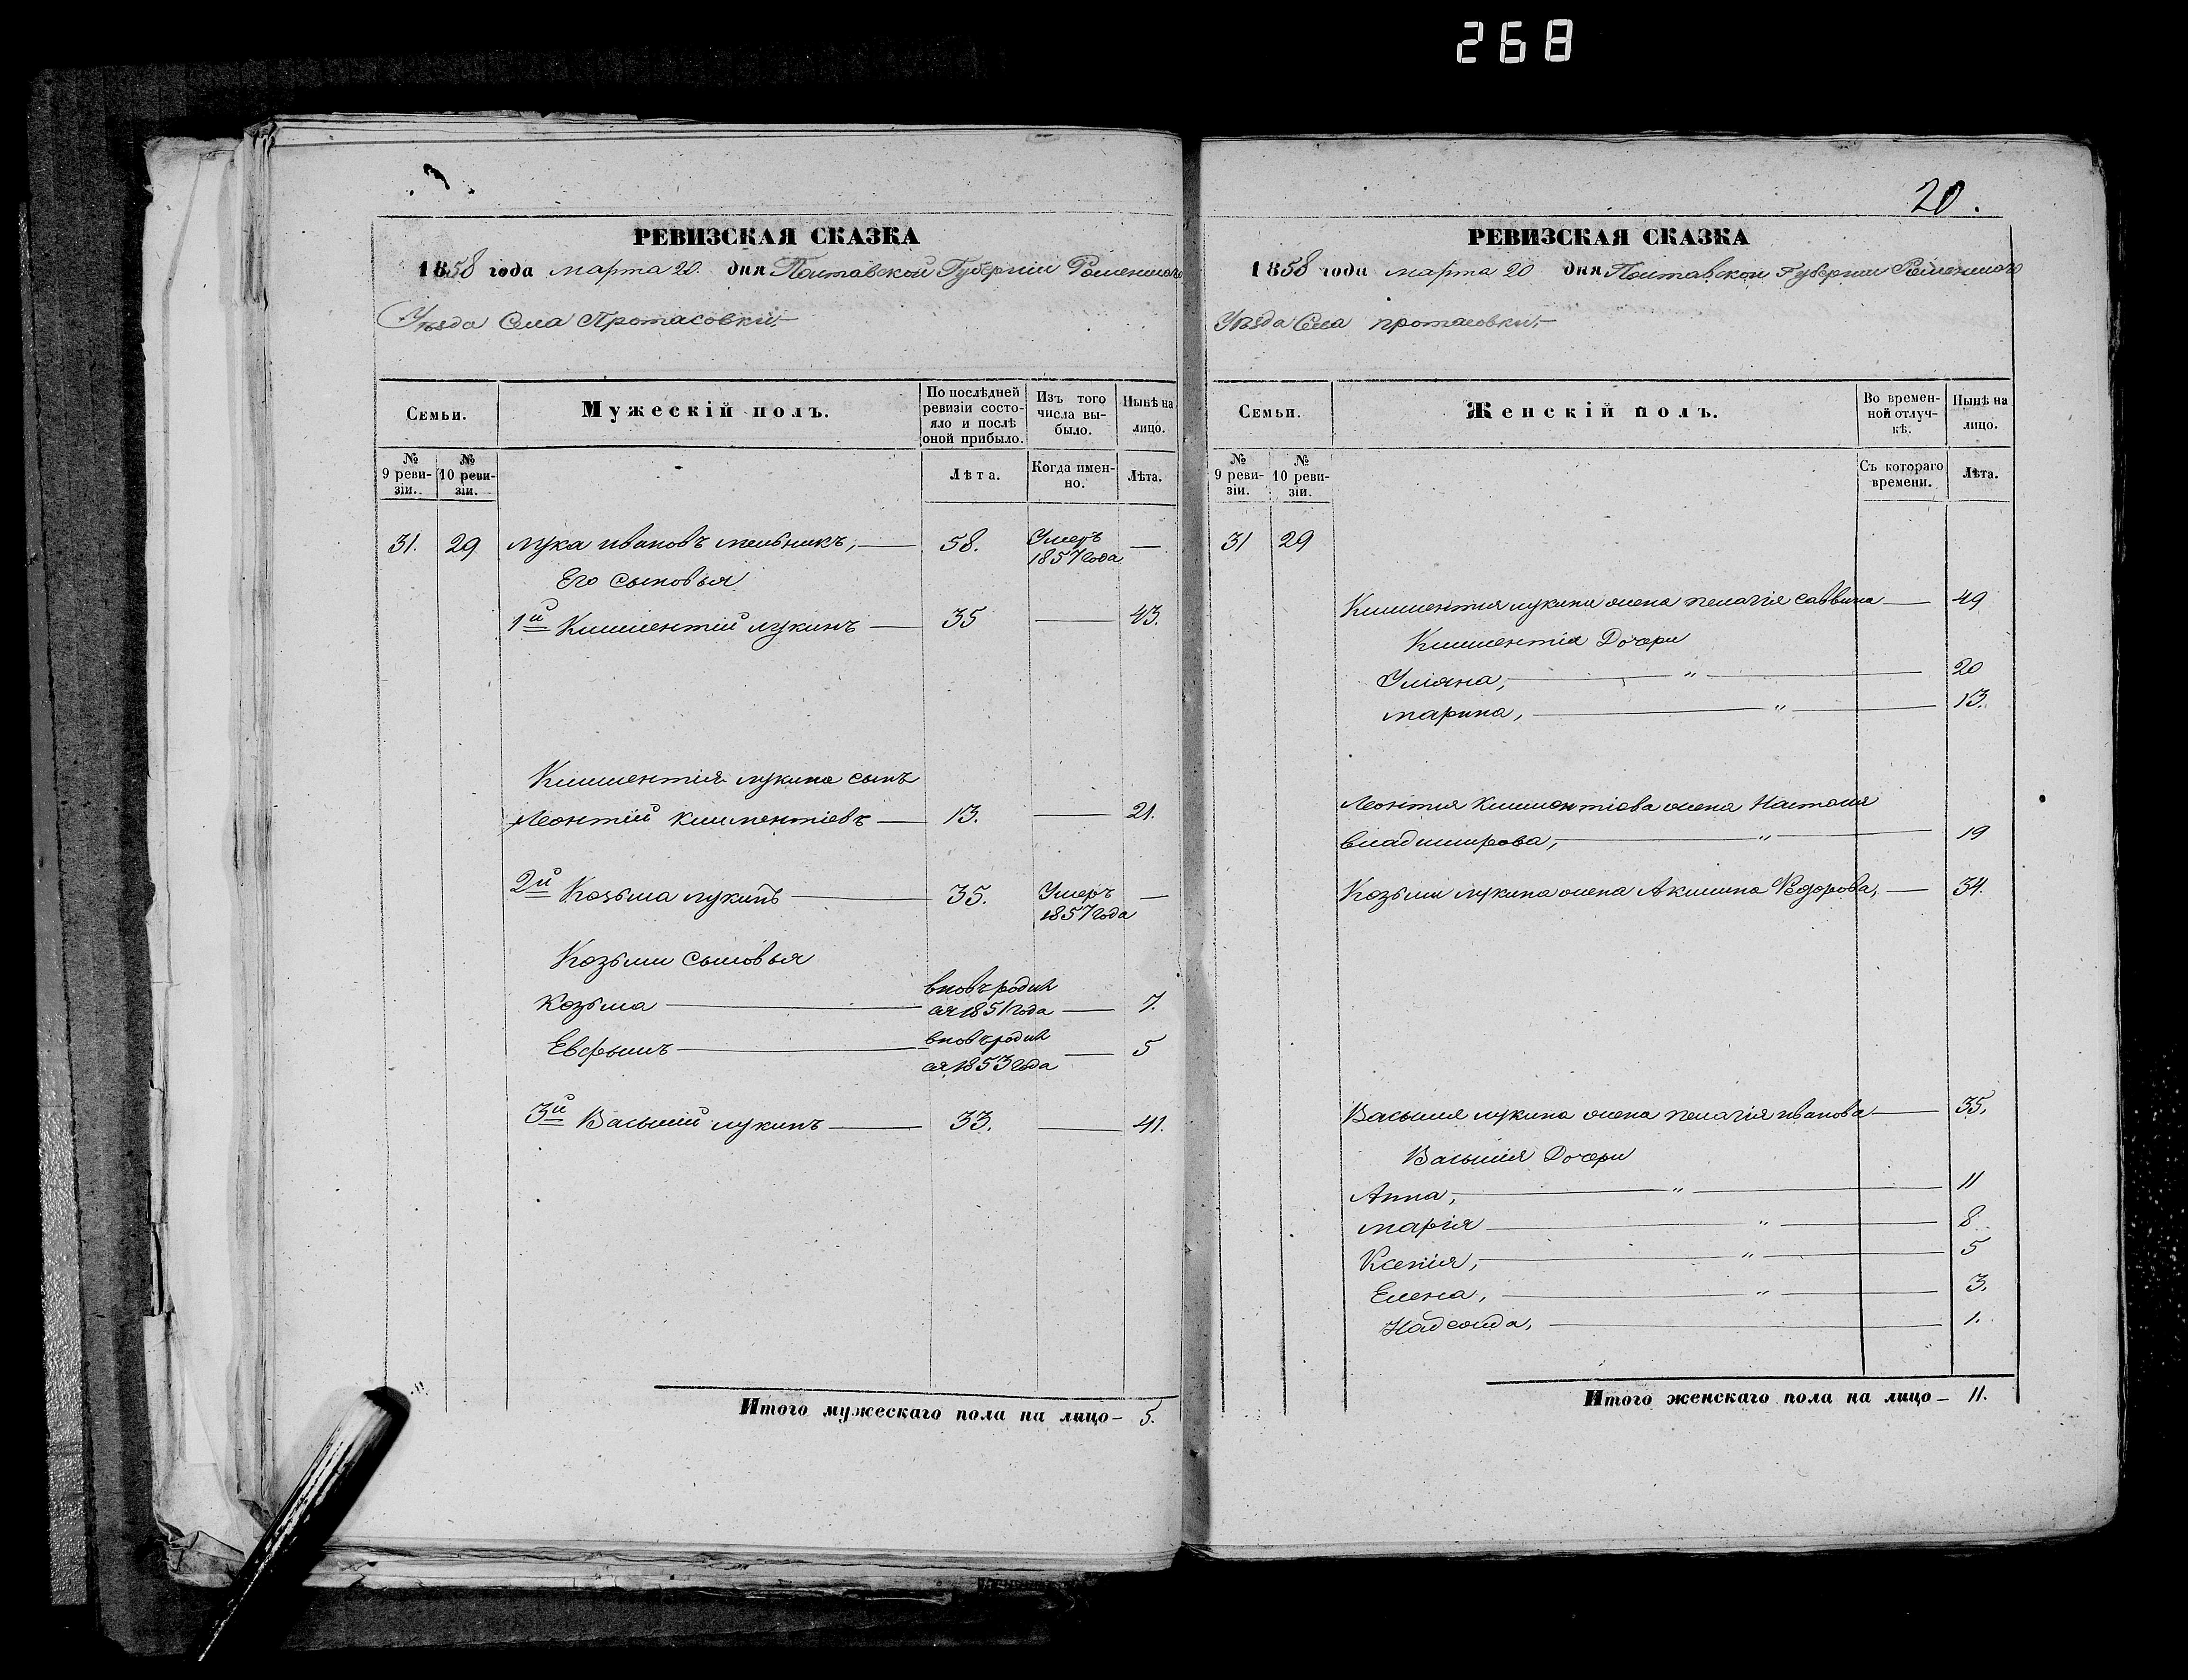 268
РЕВИЗСКАЯ СКАЗКА
1858 года марта 20. дня Полтавской Губернии Роменского
Уезда Села Протасовки,—
Семьи.
Мужескій полъ.
По послѣдней ревизіи состояло и послѣ оной прибыло.
Изъ того числа выбыло.
Нынѣ на лицо.
№ 9 ревизіи.
№ 10 ревизіи.
Лѣта.
Когда именно.
Лѣта.
31. 29 Лука ивановъ мельникъ,— 58. Умеръ 1857 года —
Его сыновья
1й Климентій лукинъ — 35 — 43.
Климентія лукина сынъ
Леонтій климентіевъ — 13. — 21.
2й Козьма лукинъ — 35. Умеръ 1857 года —
Козьми сыновья
козьма — вновь родил
ся 1851 года — 7.
Евфимъ — вновь родил
ся 1853 года — 5
3й Василий лукинъ — 33. — 41.
Итого мужескаго пола на лицо — 5.
20.
РЕВИЗСКАЯ СКАЗКА
1858 года марта 20 дня Полтавской Губернии Роменского
Уезда Села протасовки,—
Семьи.
Женскій полъ.
Во временной отлучкѣ.
Нынѣ на лицо.
№ 9 ревизіи.
№ 10 ревизіи.
Съ котораго времени.
Лѣта.
31 29
Климентия лукина жена пелагія саввина — 49
Климентія Дочери
Уляна, — " — 20
марина, — " — 13.
Леонтия климентіева жена
владимирова, — " — 19
Козьми лукина жена Акилина Федорова, — 34.
Василия лукина жена пелагія иванова — 35.
Василия Дочери
Анна, — " — 11
марія — " — 8
Ксенія, — " — 5
Елена, — " — 3.
1.
Итого женскаго пола на лицо — 11.